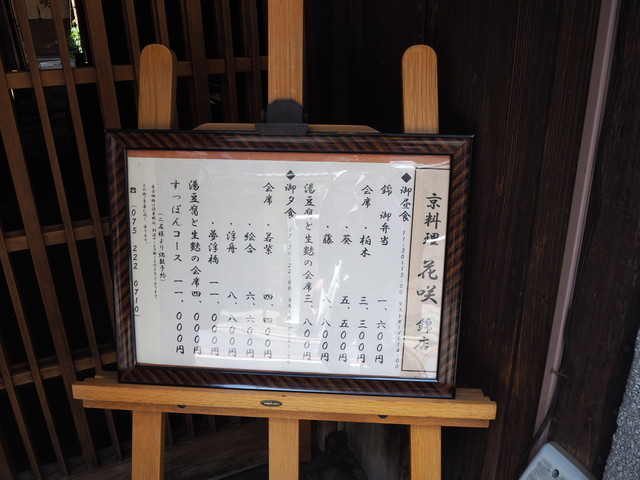 京料理 花咲 錦店
◆御昼食 11:30-15:00
錦 御弁当 一、六〇〇円
会席 ・柏木 三、三〇〇円
・葵 五、五〇〇円
・藤 八、八〇〇円
湯豆腐と生麩の会席 三、八〇〇円
◆御夕食
会席 ・若紫 四、四〇〇円
・絵合 六、六〇〇円
・浮舟 八、八〇〇円
・夢浮橋 一一、〇〇〇円
湯豆腐と生麩の会席 四、〇〇〇円
すっぽんコース 一一、〇〇〇円
(二名様より偶数予約)
☎(075 222 0710)